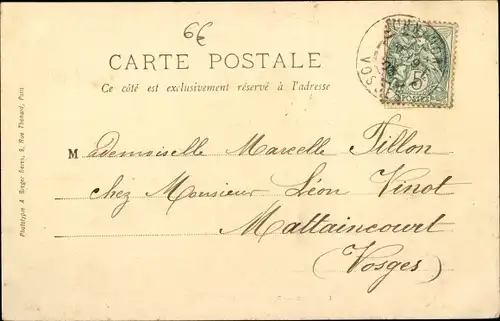 6€
CARTE POSTALE
Ce côté est exclusivement réservé à l'adresse
5
POSTES
Mademoiselle Marcelle Tillon
chez Monsieur Léon Vinot
Mattaincourt
(Vosges)
Phototypie A. Bergeret